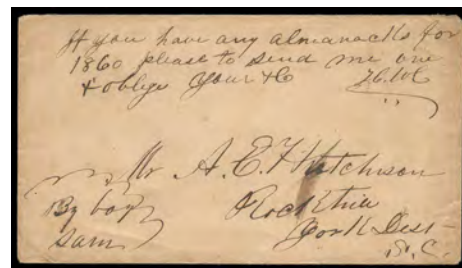 If you have any almanacks for
1860 please to send me one
& oblige Your &c
Mr A. E. Hutchison
Rock Hill
York Dist
S. C.
By boy
Sam